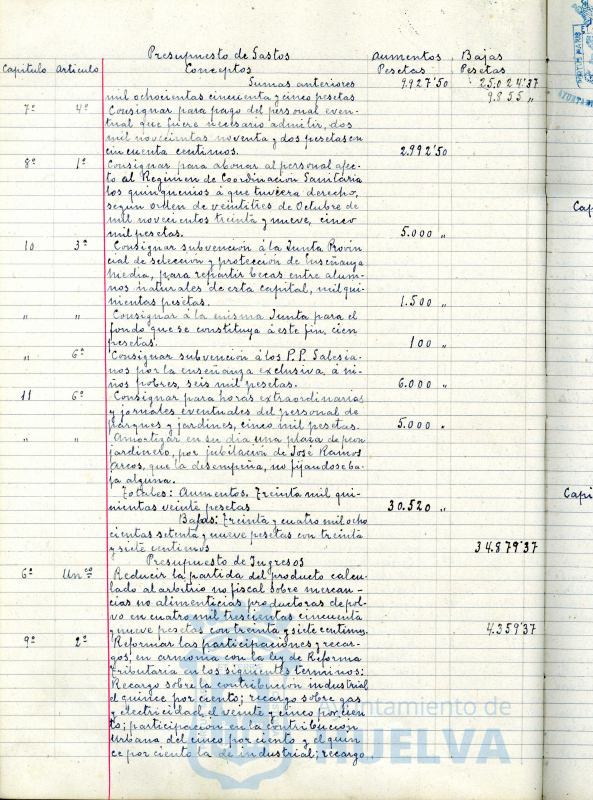 Presupuesto de Gastos Aumentos Bajas
Capítulo Artículo Conceptos Pesetas Pesetas
Sumas anteriores 9.927'50 25.024'37
mil ochocientas cincuenta y cinco pesetas 9.855 „
7º 4º Consignar para pago del personal even-
tual que fuere necesario admitir, dos
mil novecientas noventa y dos pesetas con
cincuenta centimos. 2.992'50
8º 1º Consignar para abonar al personal afec-
to al Regimen de Coordinación Sanitaria
los quinquenios á que tuviera derecho,
según orden de veintitres de Octubre de
mil novecientos treinta y nueve, cinco
mil pesetas. 5.000 „
10 3º Consignar subvención á la Junta Provin-
cial de selección y protección de Enseñanza
Media, para repartir becas entre alum-
nos naturales de esta capital, mil qui-
nientas pesetas. 1.500 „
„ „ Consignar á la misma Junta para el
fondo que se constituya á este fin, cien
pesetas. 100 „
„ 6º Consignar subvención á los P.P. Salesia-
nos por la enseñanza exclusiva á ni-
ños pobres, seis mil pesetas. 6.000 „
11 6º Consignar para horas extraordinarias
y jornales eventuales del personal de
parques y jardines, cinco mil pesetas. 5.000 „
„ „ Amortizar en su dia una plaza de peon
jardinero, por jubilación de José Ramos
Arcos, que la desempeña, no fijandose ba-
ja alguna.
Totales: Aumentos. Treinta mil qui-
nientas veinte pesetas 30.520 „
Bajas: Treinta y cuatro mil ocho
cientas setenta y nueve pesetas con treinta
y siete centimos 34.879'37
Presupuesto de Ingresos
6º Unco Reducir la partida del producto calcu-
lado al arbitrio no fiscal sobre mercan-
cias no alimenticias productoras de pol-
vo en cuatro mil trescientas cincuenta
y nueve pesetas con treinta y siete centimos. 4.359'37
9º 2º Reformar las participaciones y recar-
gos, en armonia con la ley de Reforma
tributaria en los siguientes terminos:
Recargo sobre la contribución industrial
el quince por ciento; recargo sobre gas
y electricidad, el veinte y cinco por cien-
to; participación en la contribución
Urbana del cinco por ciento y el quin-
ce por ciento la de industrial; recargo
Capi
Ayuntamiento de
HUELVA